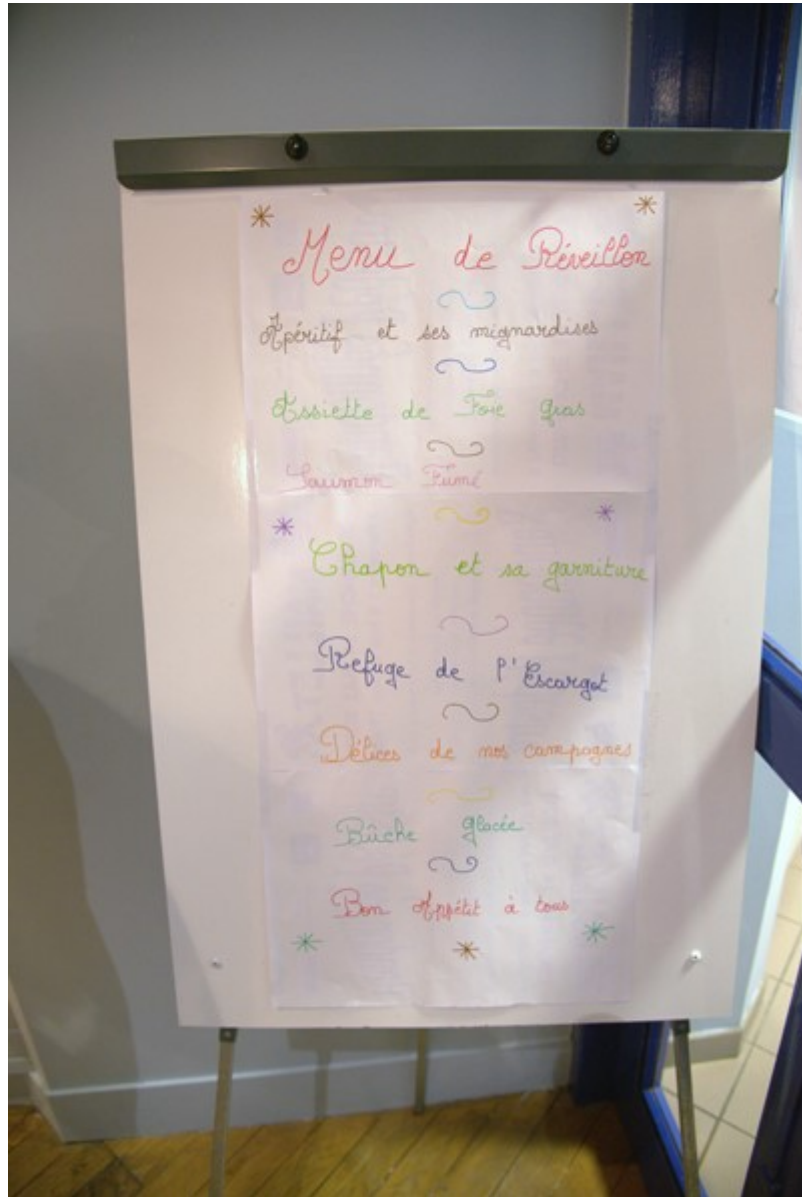 Menu de Réveillon
Apéritif et ses mignardises
Assiette de Foie gras
Saumon Fumé
Chapon et sa garniture
Refuge de l'Escargot
Délices de nos campagnes
Bûche glacée
Bon Appétit à tous